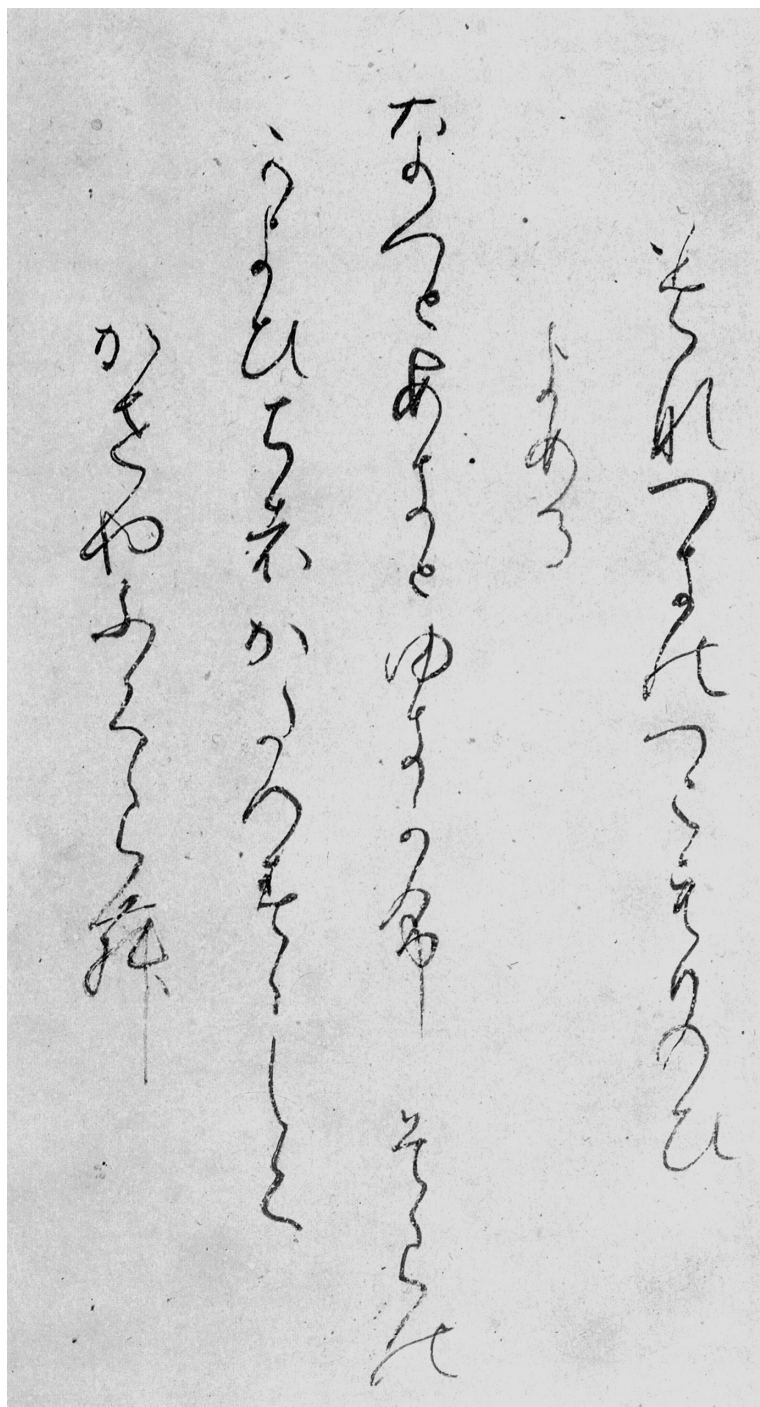 みなつきのつこもりのひ
よめる
なつとあきとゆきかふそらの
かよひちはかたへすゝしく
かせやふくらむ